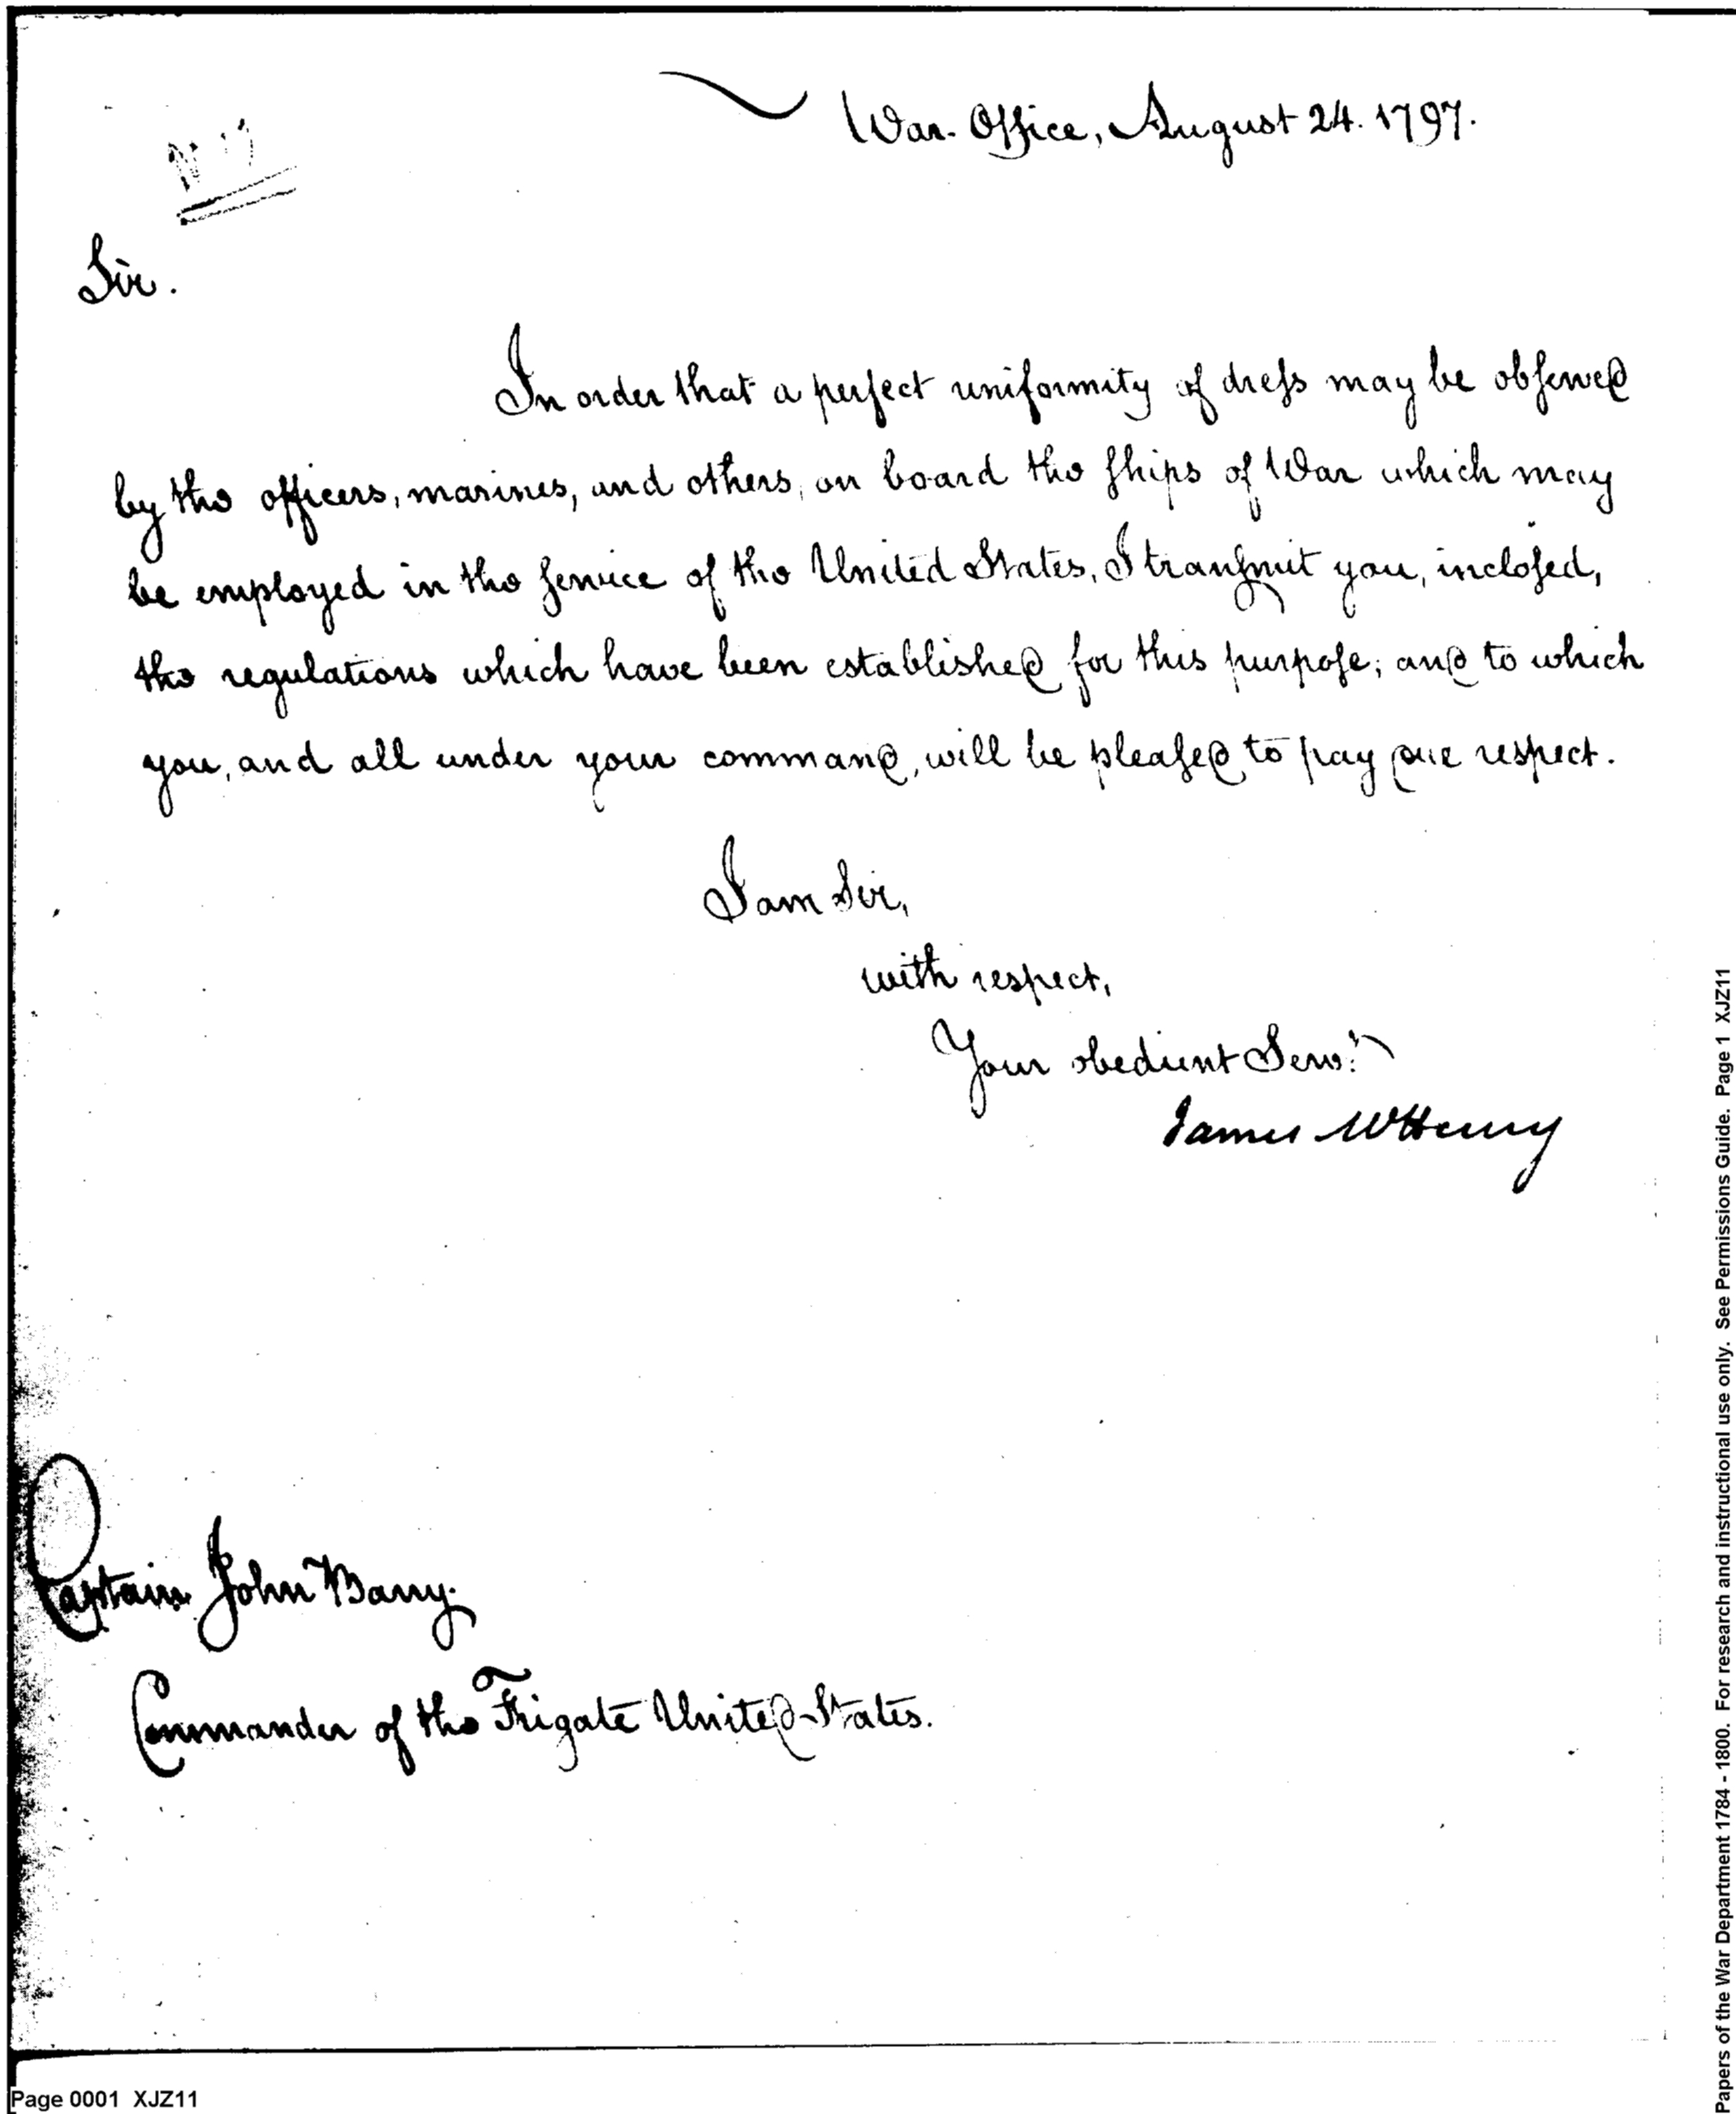 War-Office, August 24. 1797.
Sir.
In order that a perfect uniformity of dress may be observed
by the officers, marines, and others, on board the ships of War which may
be employed in the service of the United States, I transmit you, inclosed,
the regulations which have been established for this purpose; and to which
you, and all under your command, will be pleased to pay due respect.
I am Sir,
with respect,
Your obedient Servt.
James McHenry
Captain John Barry.
Commander of the Frigate United States.
Page 0001 XJZ11
Papers of the War Department 1784 - 1800. For research and instructional use only. See Permissions Guide. Page 1 XJZ11